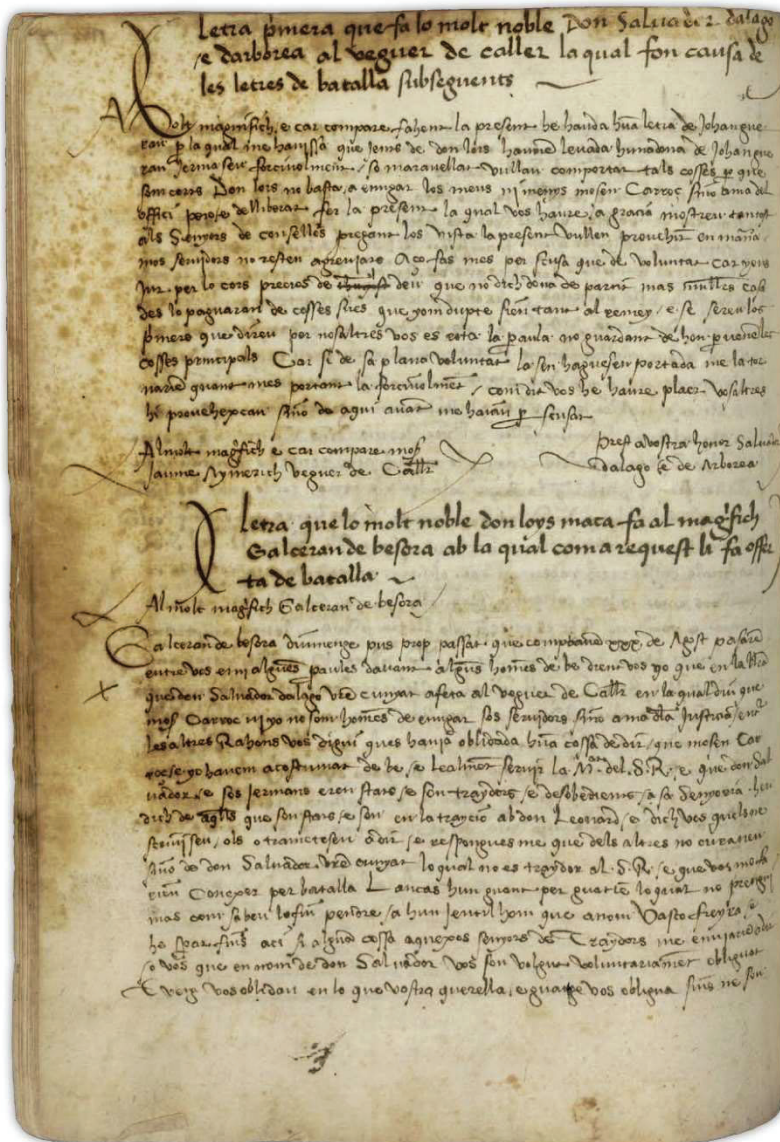 letra primera que fa lo molt noble Don Salvador dalago
e darborea al veguer de caller la qual fon causa de
les letres de batalla subseguents
Molt magnifich e car compare fahent la present he hauda hua letra de Johan gue
rau p la qual me hauissa que jens de don lois hauried levada huna dona de Johan gue
rau jerma seu forcivolment so maravellat vullau comportar tals cosses p que
sem corts Don lois no basta a enujar los meus ni menys mosen Carroç sino ama del
offici poro so delliberat fer la present la qual vos haure a gracia mostreu
als Senyors de consellés pregant los vista la present vullen provehir en mana
mos servidors no resten agreujats Aço fas mes per scusa que de voluntat Car yous
jur per lo cors precios de deu que no dich dona de parait mas
des lo pagaran de cosses sues que yom dupte sien tart al remey e se sereu los
primers que direu per nosaltres vos es rota la paula no guardant de hon provenen les
cosses principals Car si de sa plana voluntat la sen haguesen portada me la tor
naried quant mes portant la forcivolment com dit vos he haure plaer vosaltres
hi provehexcau sino de aqui avant me haiau p scusat
Al molt magfich e car compare mos
Jaume Aymerich veguer de Callr
Prest a vostra honor Salvador
dalago e de Arborea
letra que lo molt noble don loys maca fa al magfich
Galceran de besora ab la qual com a request li fa offer
ta de batalla
Al molt magfich Galceran de besora
Galceran de besora diumenge pus prop passat que comptaued xxx de Agost pasare
entre vos e mi algues paules davant algus homes de be dient vos yo que en la lra
que don Salvador dalago vre cunyat afeta al veguer de Callr en la qual diu que
mos Carroc ni yo no som homes de enujar sos servidors sino a ma dla Justicia entr
les altres Rahons vos digui ques hauja oblidada hua cossa de dir que mosen Car
roc e yo havem acostumat de be e lealmet servir la Mat del S.R. e que don Sal
vador e sos jermans eren stats e son traydors e desobedients a sa Senyoria heu
dich de aqlls que son stats e son en la traycio ab don Leonard e dich vos quels ne
scriviseu ols o trameteseu a dir e respongues me que dels altres no curaueu
sino de don Salvador vre cunyat lo qual no es traydor al S.R. e que vos mo fa
rieu Conexer per batalla Lancas hun guant per guatge lo qual no prengui
mas com sabeu lo fiu pendre a hun jentil hom que a nom Vasco freyra e
he sparat fins aci si alguna cossa aquexos senyors de Traydors me enviaried a dir
o vos que en nom de don Salvador vos sou volgut voluntariamet obliguar
E veig vos oblidau en lo que vostra querella e guatge vos obligua sius ne sou